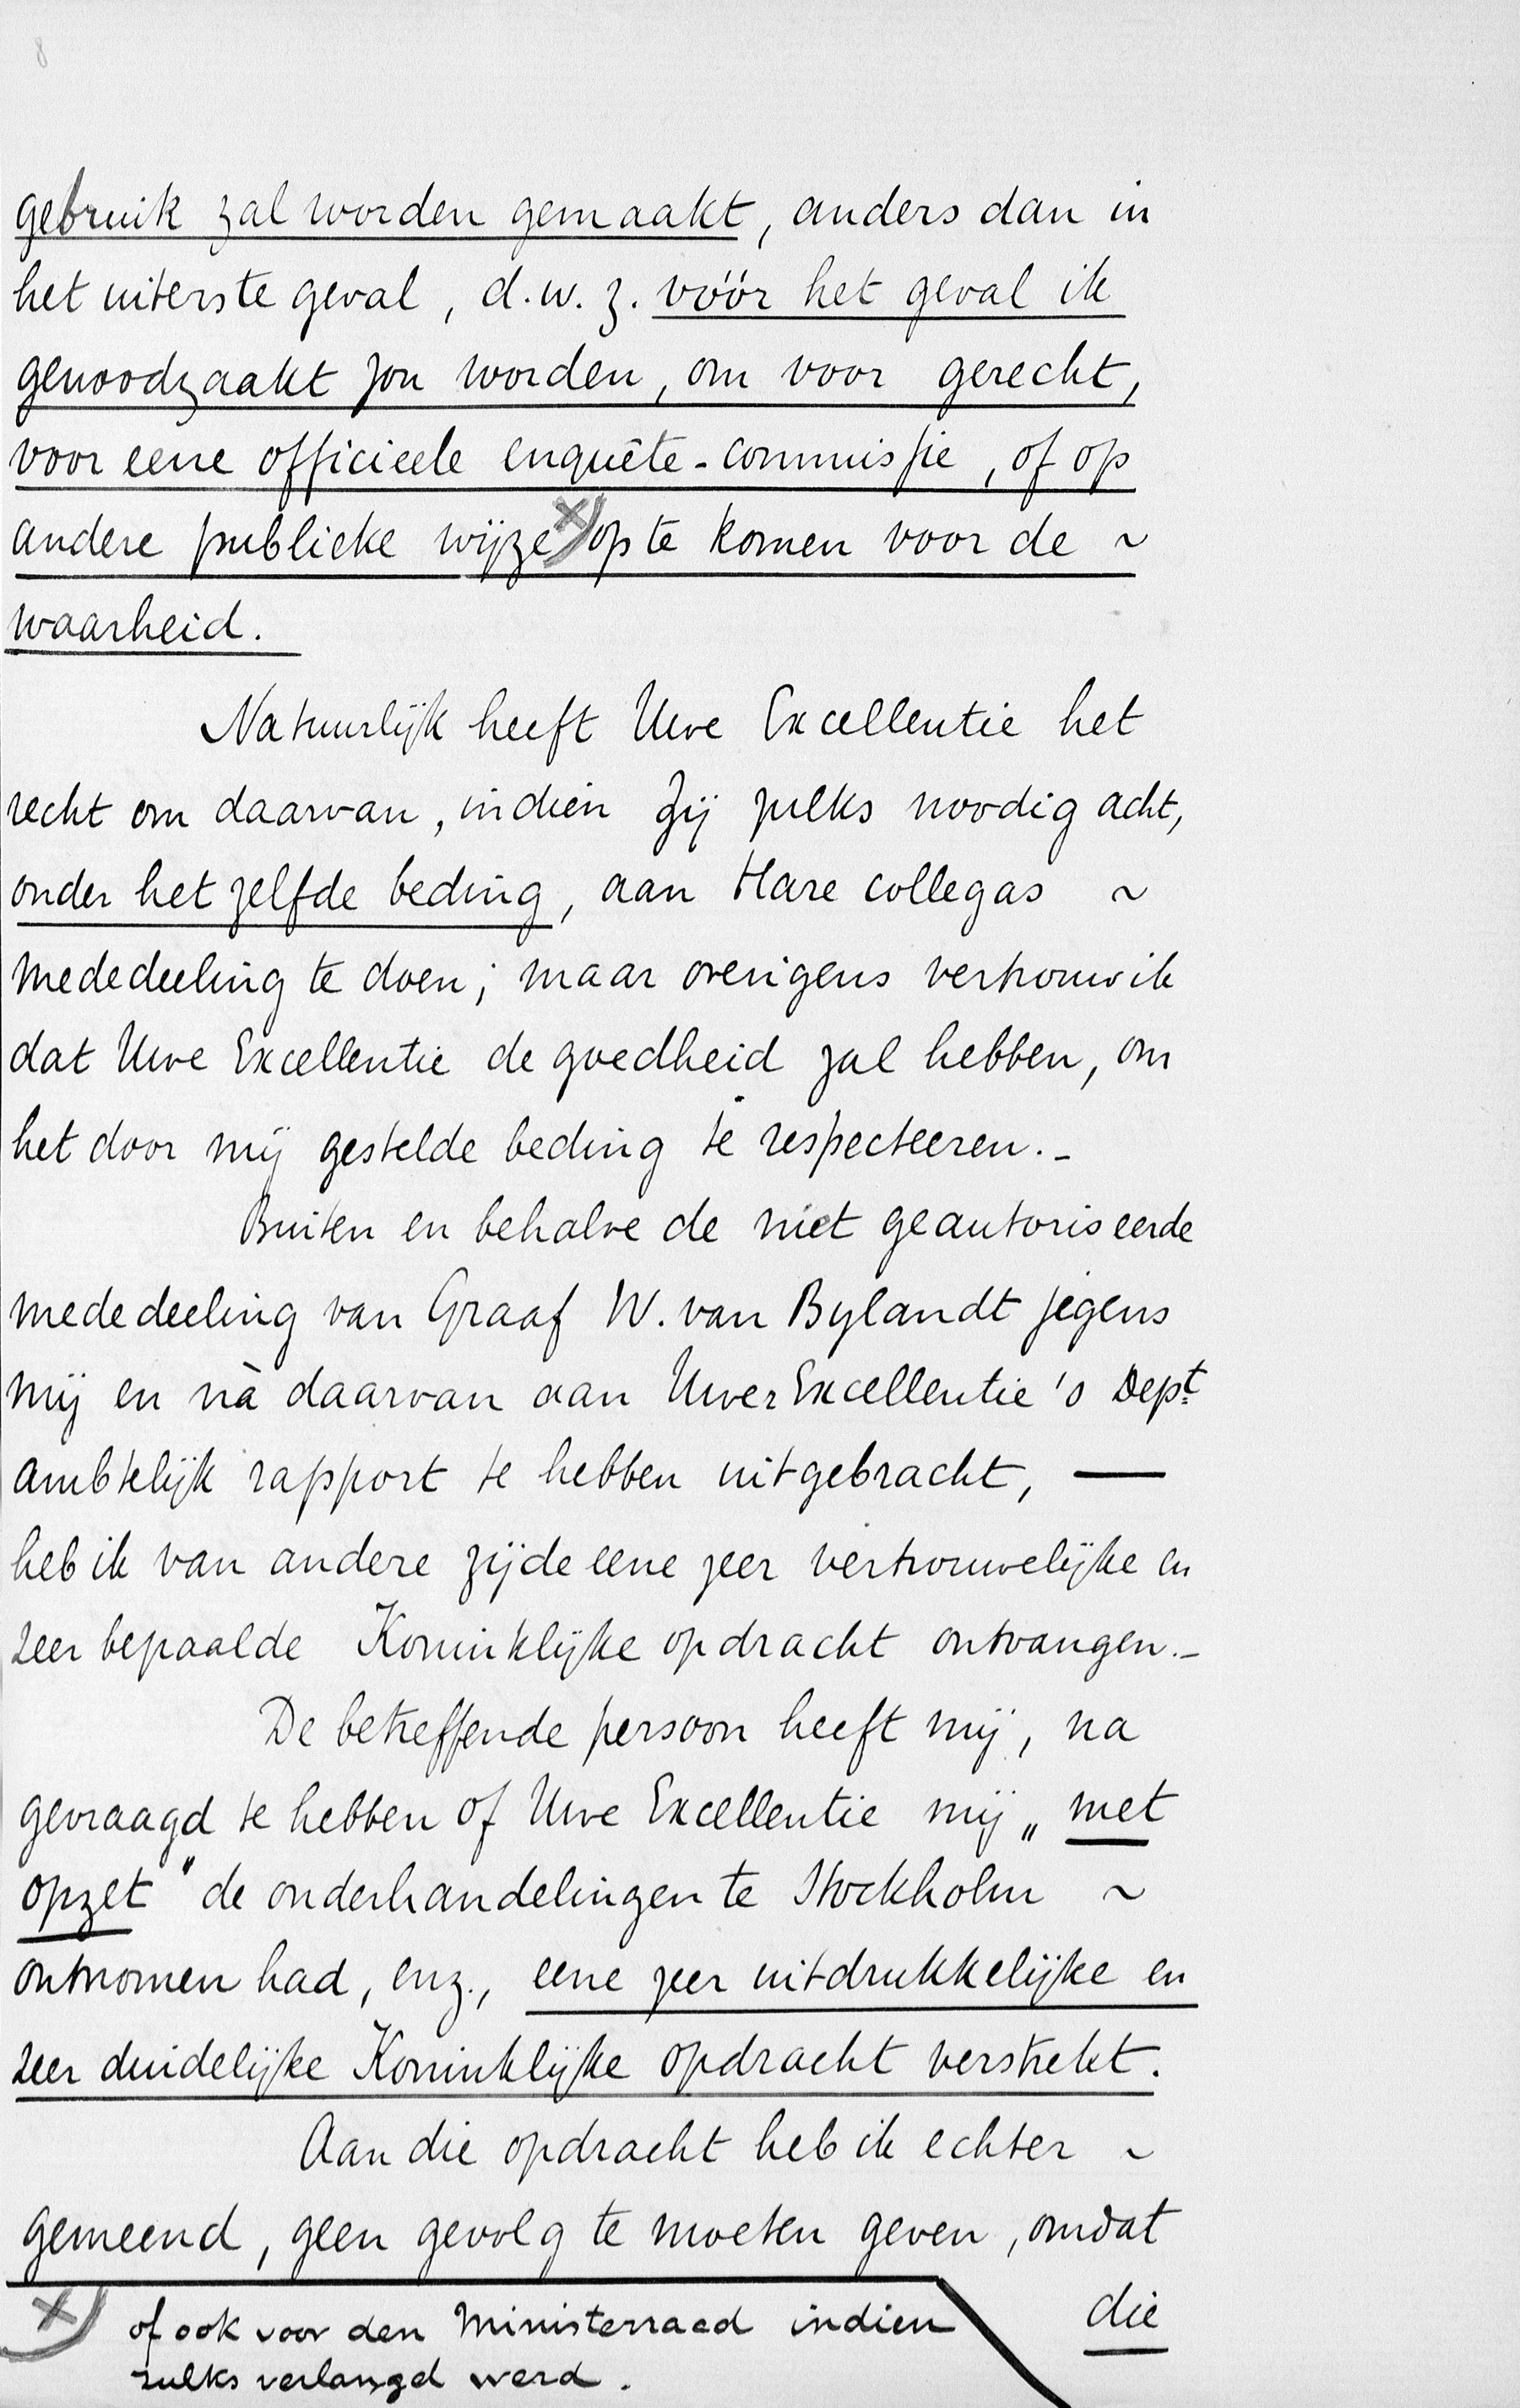 8
gebruik zal worden gemaakt, anders dan in
het uiterste geval, d.w.z. vóór het geval ik
genoodzaakt zou worden, om voor gerecht,
voor eene officieele enquête-commissie, of op
andere publieke wijze x) op te komen voor de ~
waarheid.
Natuurlijk heeft Uwe Excellentie het
recht om daarvan, indien Zij zulks noodig acht,
onder het zelfde beding, aan Hare collegas ~
mededeeling te doen; maar overigens vertrouw ik
dat Uwe Excellentie de goedheid zal hebben, om
het door mij gestelde beding te respecteeren. -
Buiten en behalve de niet geautoriseerde
mededeeling van Graaf W. van Bylandt jegens
mij en nà daarvan aan Uwer Excellentie 's Dept
ambtelijk rapport te hebben uitgebracht, —
heb ik van andere zijde eene zeer vertrouwelijke en
zeer bepaalde Koninklijke opdracht ontvangen. -
De betreffende persoon heeft mij, na
gevraagd te hebben of Uwe Excellentie mij „met
opzet" de onderhandelingen te Stockholm ~
ontnomen had, enz., eene zeer uitdrukkelijke en
zeer duidelijke Koninklijke opdracht verstrekt.
Aan die opdracht heb ik echter ~
gemeend, geen gevolg te moeten geven, omdat
die
x) of ook voor den Ministerraad indien
zulks verlangd werd.